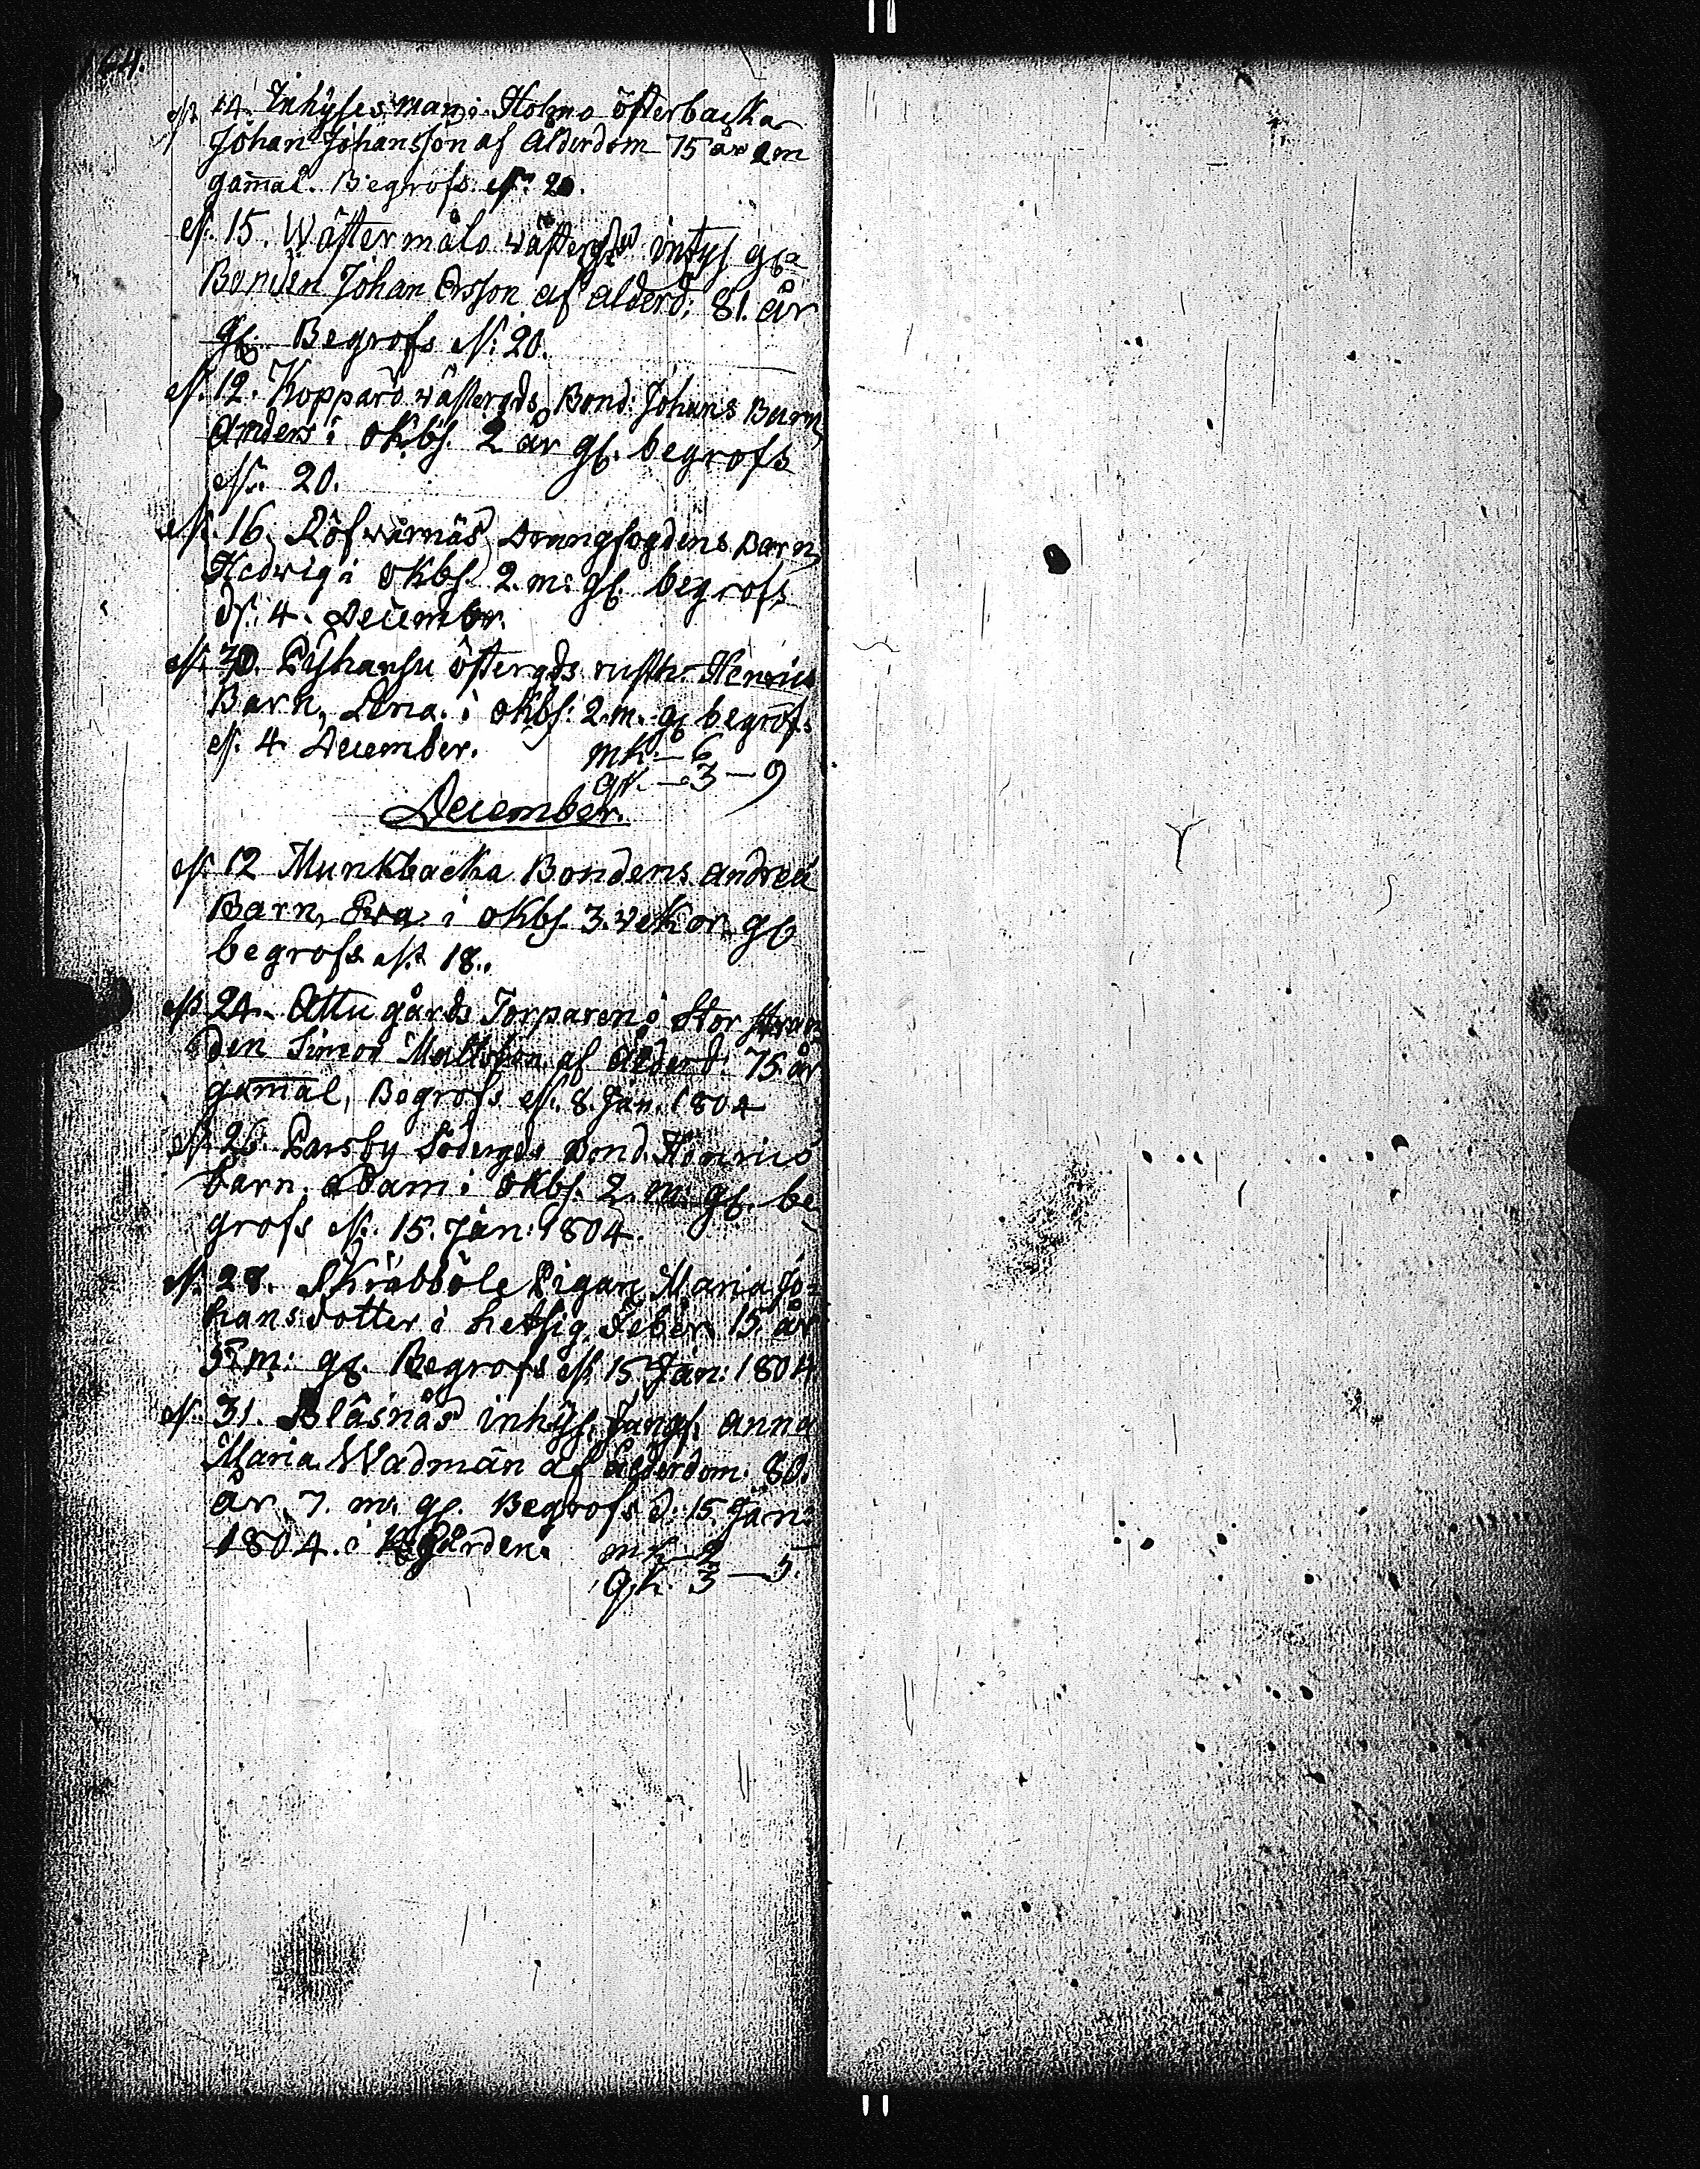 164.
N. 14. Inhyses man i Holmo österbacka
Johan Johansson af Ålderdom 75 år
gam̄al. Begrofs N: 20.
N. 15. Wästermålo wästergds inhys gla
Bonden Johan Ersson af alderd: 81. år
gl. Begrofs N: 20.
N. 12. Koppars wästergds Bond: Johans Barn,
Anders i okbs. 2 år gl. begrofs
N. 20.
N. 16. Löfwärnäs Drengfogdens Barn,
Hedwig i okbs. 2. m: gl. begrofs
N. 4. December.
N. 30. Pyhansu östergds rusth. Henrics
Barn, Lena. i okbs: 2. m. gl begrofs
N. 4 December.
mk. — 6
qk. — 3 — 9
December.
N. 12 Munkbacka Bondens Andreæ
Barn, Eva i okbs. 3. wekor gl
begrofs N. 18.
N. 24. Attu gårds Torparen i Stor stran
den Simon Mattsson af ålderd. 75 år
gam̄al, Begrofs N. 8. Jan. 1804
N. 26. Parsby Södergds Bond. Henrics
barn. Adam i okbs. 2. m: gl. be
grofs N. 15. Jan: 1804.
N. 28. Skräbböle Pigan Maria Jo=
hansdotter i hetsig Feber 15 år
m: gl. Begrofs N 15 Jan: 1804
N. 31. Bläsnäs inhys. Jungf. Anna
Maria Wadmän af ålderdom. 80.
år 7. m. gl. Begrofs d: 15. Jan:
1804. i Kgården.
mk 2
qk. 3 — 5.